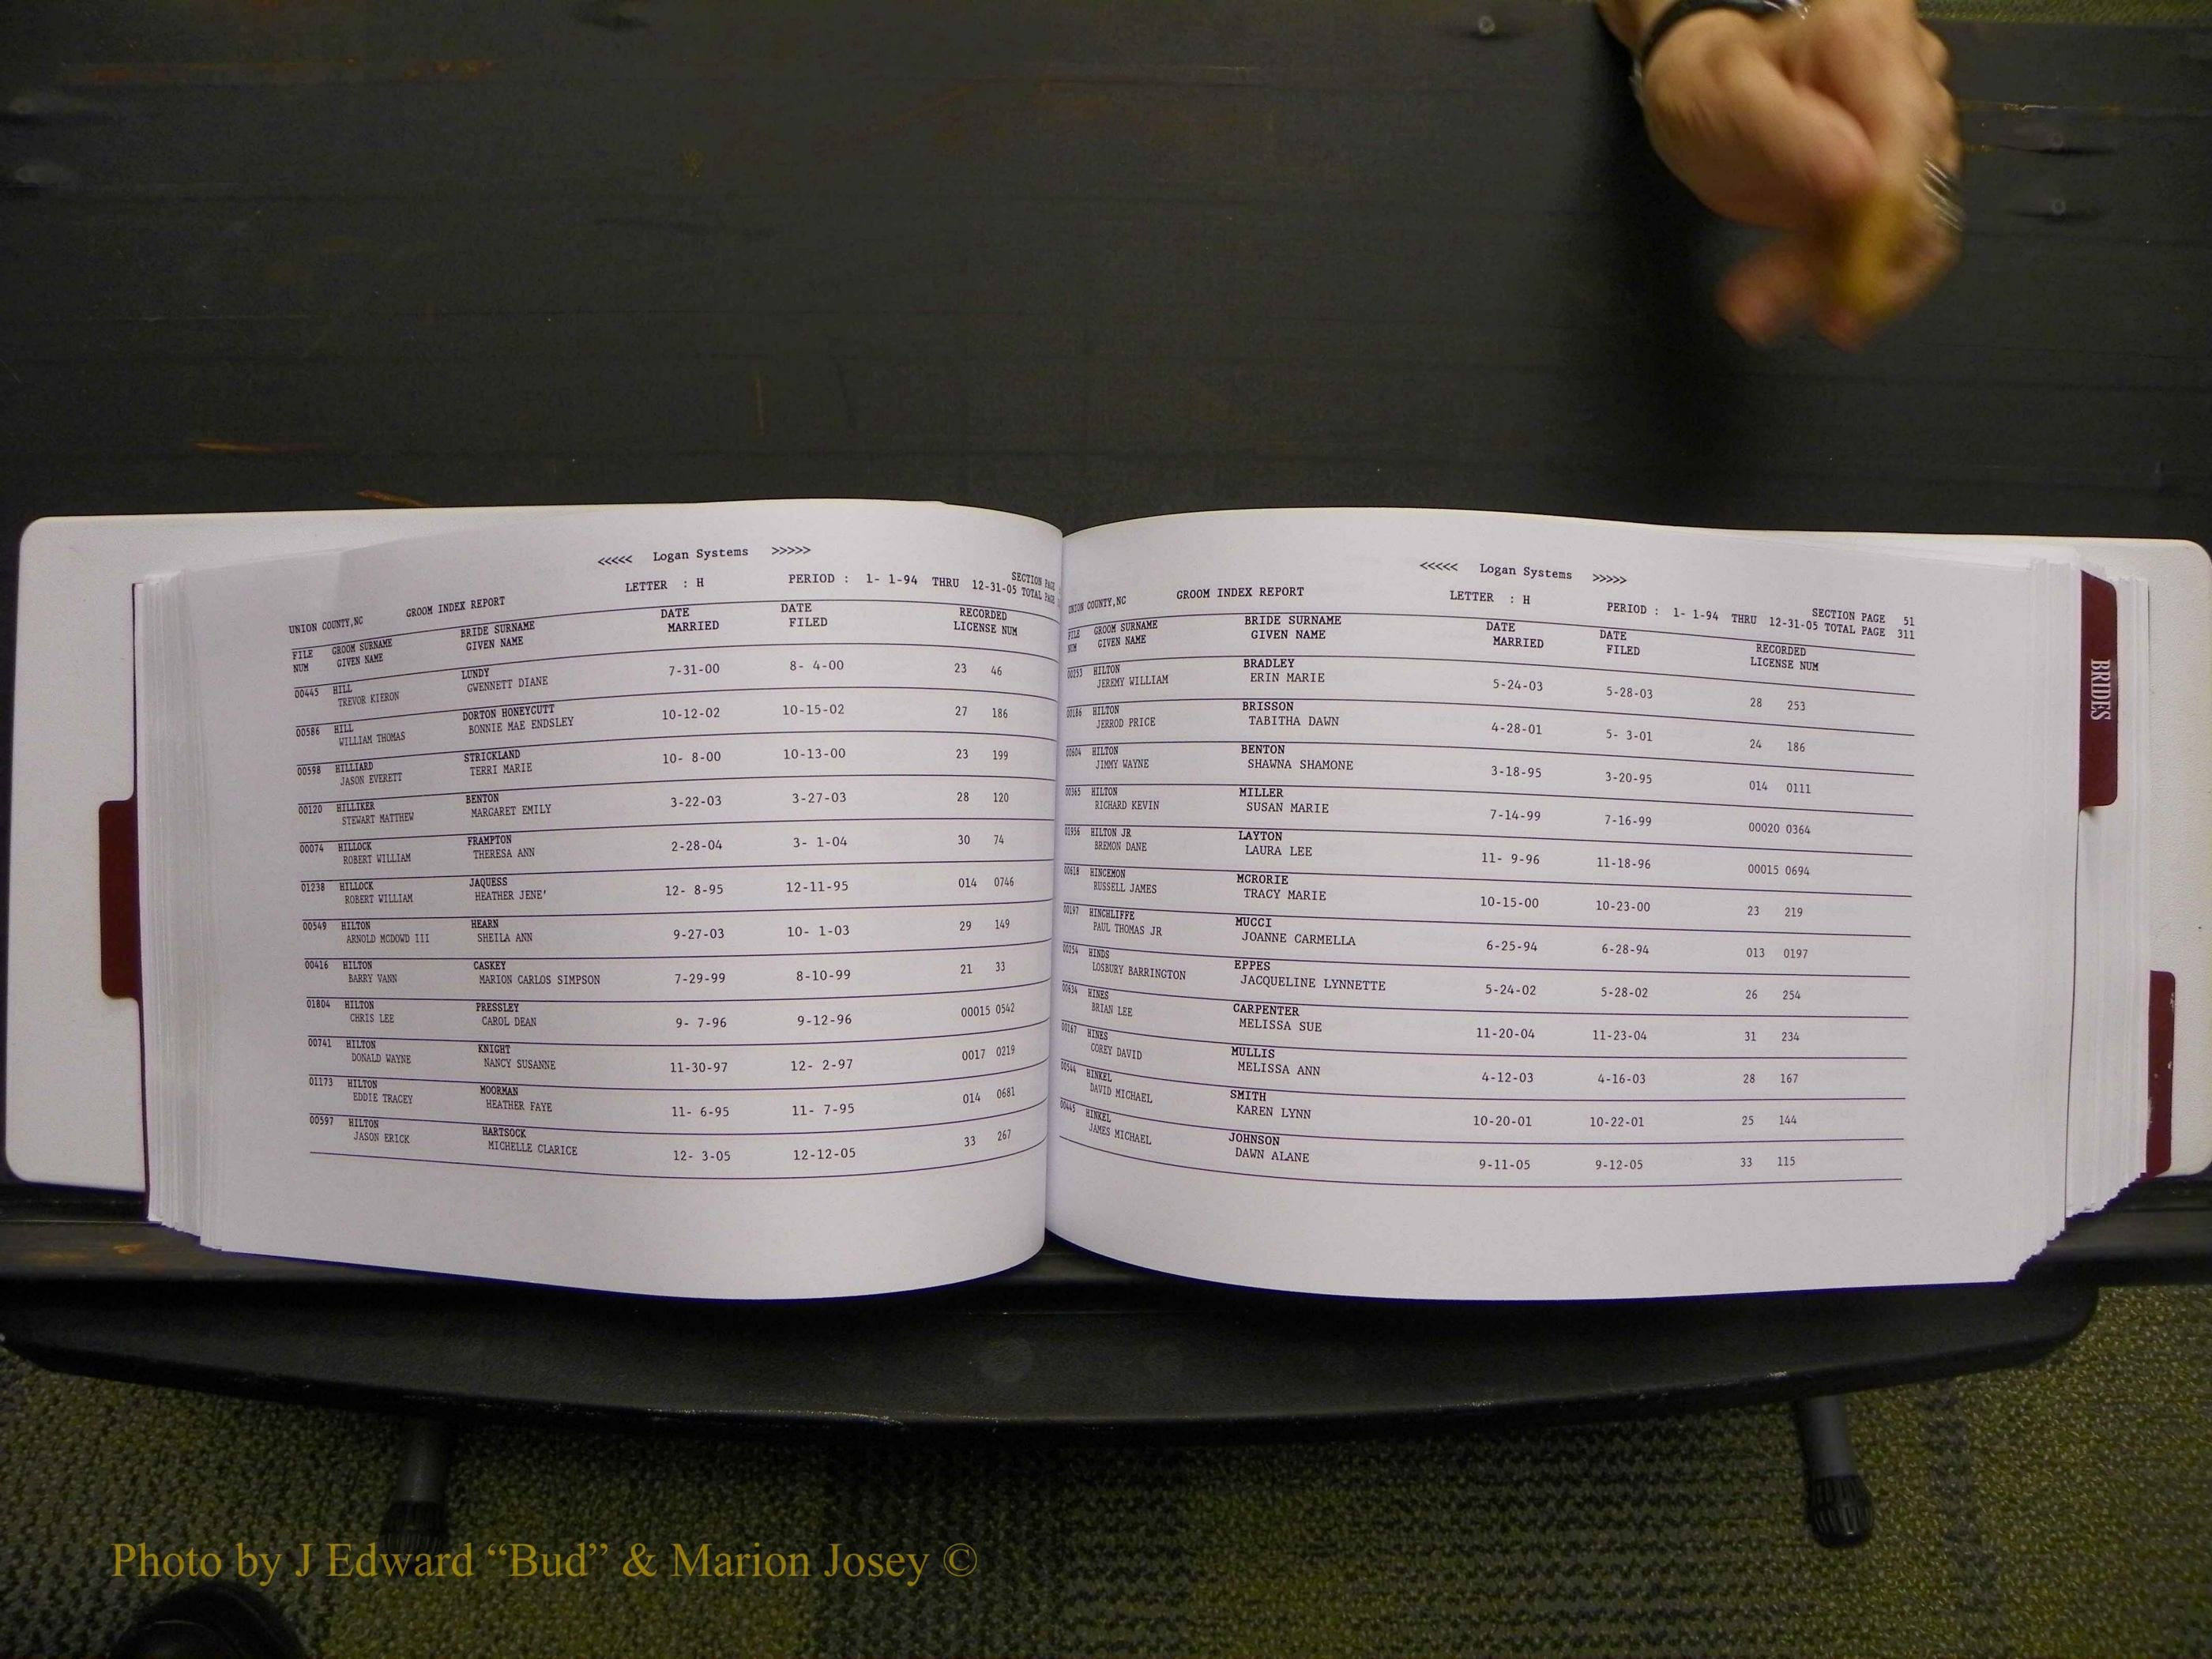 <<<<< Logan Systems >>>>>
UNION COUNTY,NC GROOM INDEX REPORT LETTER : H PERIOD : 1- 1-94 THRU 12-31-05 SECTION PAGE
TOTAL PAGE
FILE GROOM SURNAME BRIDE SURNAME DATE DATE RECORDED
NUM GIVEN NAME GIVEN NAME MARRIED FILED LICENSE NUM
00445 HILL LUNDY 7-31-00 8- 4-00 23 46
TREVOR KIERON GWENNETT DIANE
00586 HILL DORTON HONEYCUTT 10-12-02 10-15-02 27 186
WILLIAM THOMAS BONNIE MAE ENDSLEY
00598 HILLIARD STRICKLAND 10- 8-00 10-13-00 23 199
JASON EVERETT TERRI MARIE
00120 HILLIKER BENTON 3-22-03 3-27-03 28 120
STEWART MATTHEW MARGARET EMILY
00074 HILLOCK FRAMPTON 2-28-04 3- 1-04 30 74
ROBERT WILLIAM THERESA ANN
01238 HILLOCK JAQUESS 12- 8-95 12-11-95 014 0746
ROBERT WILLIAM HEATHER JENE'
00549 HILTON HEARN 9-27-03 10- 1-03 29 149
ARNOLD MCDOWD III SHEILA ANN
00416 HILTON CASKEY 7-29-99 8-10-99 21 33
BARRY VANN MARION CARLOS SIMPSON
01804 HILTON PRESSLEY 9- 7-96 9-12-96 00015 0542
CHRIS LEE CAROL DEAN
00741 HILTON KNIGHT 11-30-97 12- 2-97 0017 0219
DONALD WAYNE NANCY SUSANNE
01173 HILTON MOORMAN 11- 6-95 11- 7-95 014 0681
EDDIE TRACEY HEATHER FAYE
00597 HILTON HARTSOCK 12- 3-05 12-12-05 33 267
JASON ERICK MICHELLE CLARICE
<<<<< Logan Systems >>>>>
UNION COUNTY,NC GROOM INDEX REPORT LETTER : H PERIOD : 1- 1-94 THRU 12-31-05 SECTION PAGE 51
TOTAL PAGE 311
FILE GROOM SURNAME BRIDE SURNAME DATE DATE RECORDED
NUM GIVEN NAME GIVEN NAME MARRIED FILED LICENSE NUM
00253 HILTON BRADLEY 5-24-03 5-28-03 28 253
JEREMY WILLIAM ERIN MARIE
00186 HILTON BRISSON 4-28-01 5- 3-01 24 186
JERROD PRICE TABITHA DAWN
00604 HILTON BENTON 3-18-95 3-20-95 014 0111
JIMMY WAYNE SHAWNA SHAMONE
00365 HILTON MILLER 7-14-99 7-16-99 00020 0364
RICHARD KEVIN SUSAN MARIE
01956 HILTON JR LAYTON 11- 9-96 11-18-96 00015 0694
BREMON DANE LAURA LEE
00618 HINCEMON MCRORIE 10-15-00 10-23-00 23 219
RUSSELL JAMES TRACY MARIE
00197 HINCHLIFFE MUCCI 6-25-94 6-28-94 013 0197
PAUL THOMAS JR JOANNE CARMELLA
00254 HINDS EPPES 5-24-02 5-28-02 26 254
LOSBURY BARRINGTON JACQUELINE LYNNETTE
00634 HINES CARPENTER 11-20-04 11-23-04 31 234
BRIAN LEE MELISSA SUE
00167 HINES MULLIS 4-12-03 4-16-03 28 167
COREY DAVID MELISSA ANN
00544 HINKEL SMITH 10-20-01 10-22-01 25 144
DAVID MICHAEL KAREN LYNN
00445 HINKEL JOHNSON 9-11-05 9-12-05 33 115
JAMES MICHAEL DAWN ALANE
BRIDES
Photo by J Edward “Bud” & Marion Josey ©